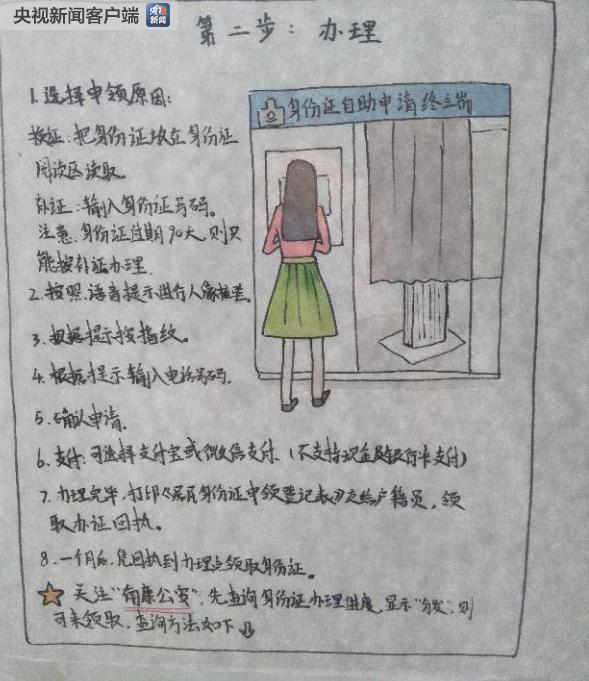 央视新闻客户端 央视新闻
第二步：办理
身份证自助申请终端
1.选择申领原因：
换证：把身份证放在身份证
阅读区读取
补证：输入身份证号码。
注意：身份证过期90天，则只
能按补证办理.
2.按照语音提示进行人像核验.
3.根据提示按指纹。
4.根据提示输入电话号码.
5.确认申请.
6.支付：可选择支付宝或微信支付.（不支持现金及银行卡支付）
7.办理完毕，打印《居民身份证申领登记表》交给户籍员，领
取办证回执。
8.一个月后，凭回执到办理点领取身份证。
关注“甪康公安”，先查询身份证办理进度，显示“分发”，则
可来领取，查询方法如下